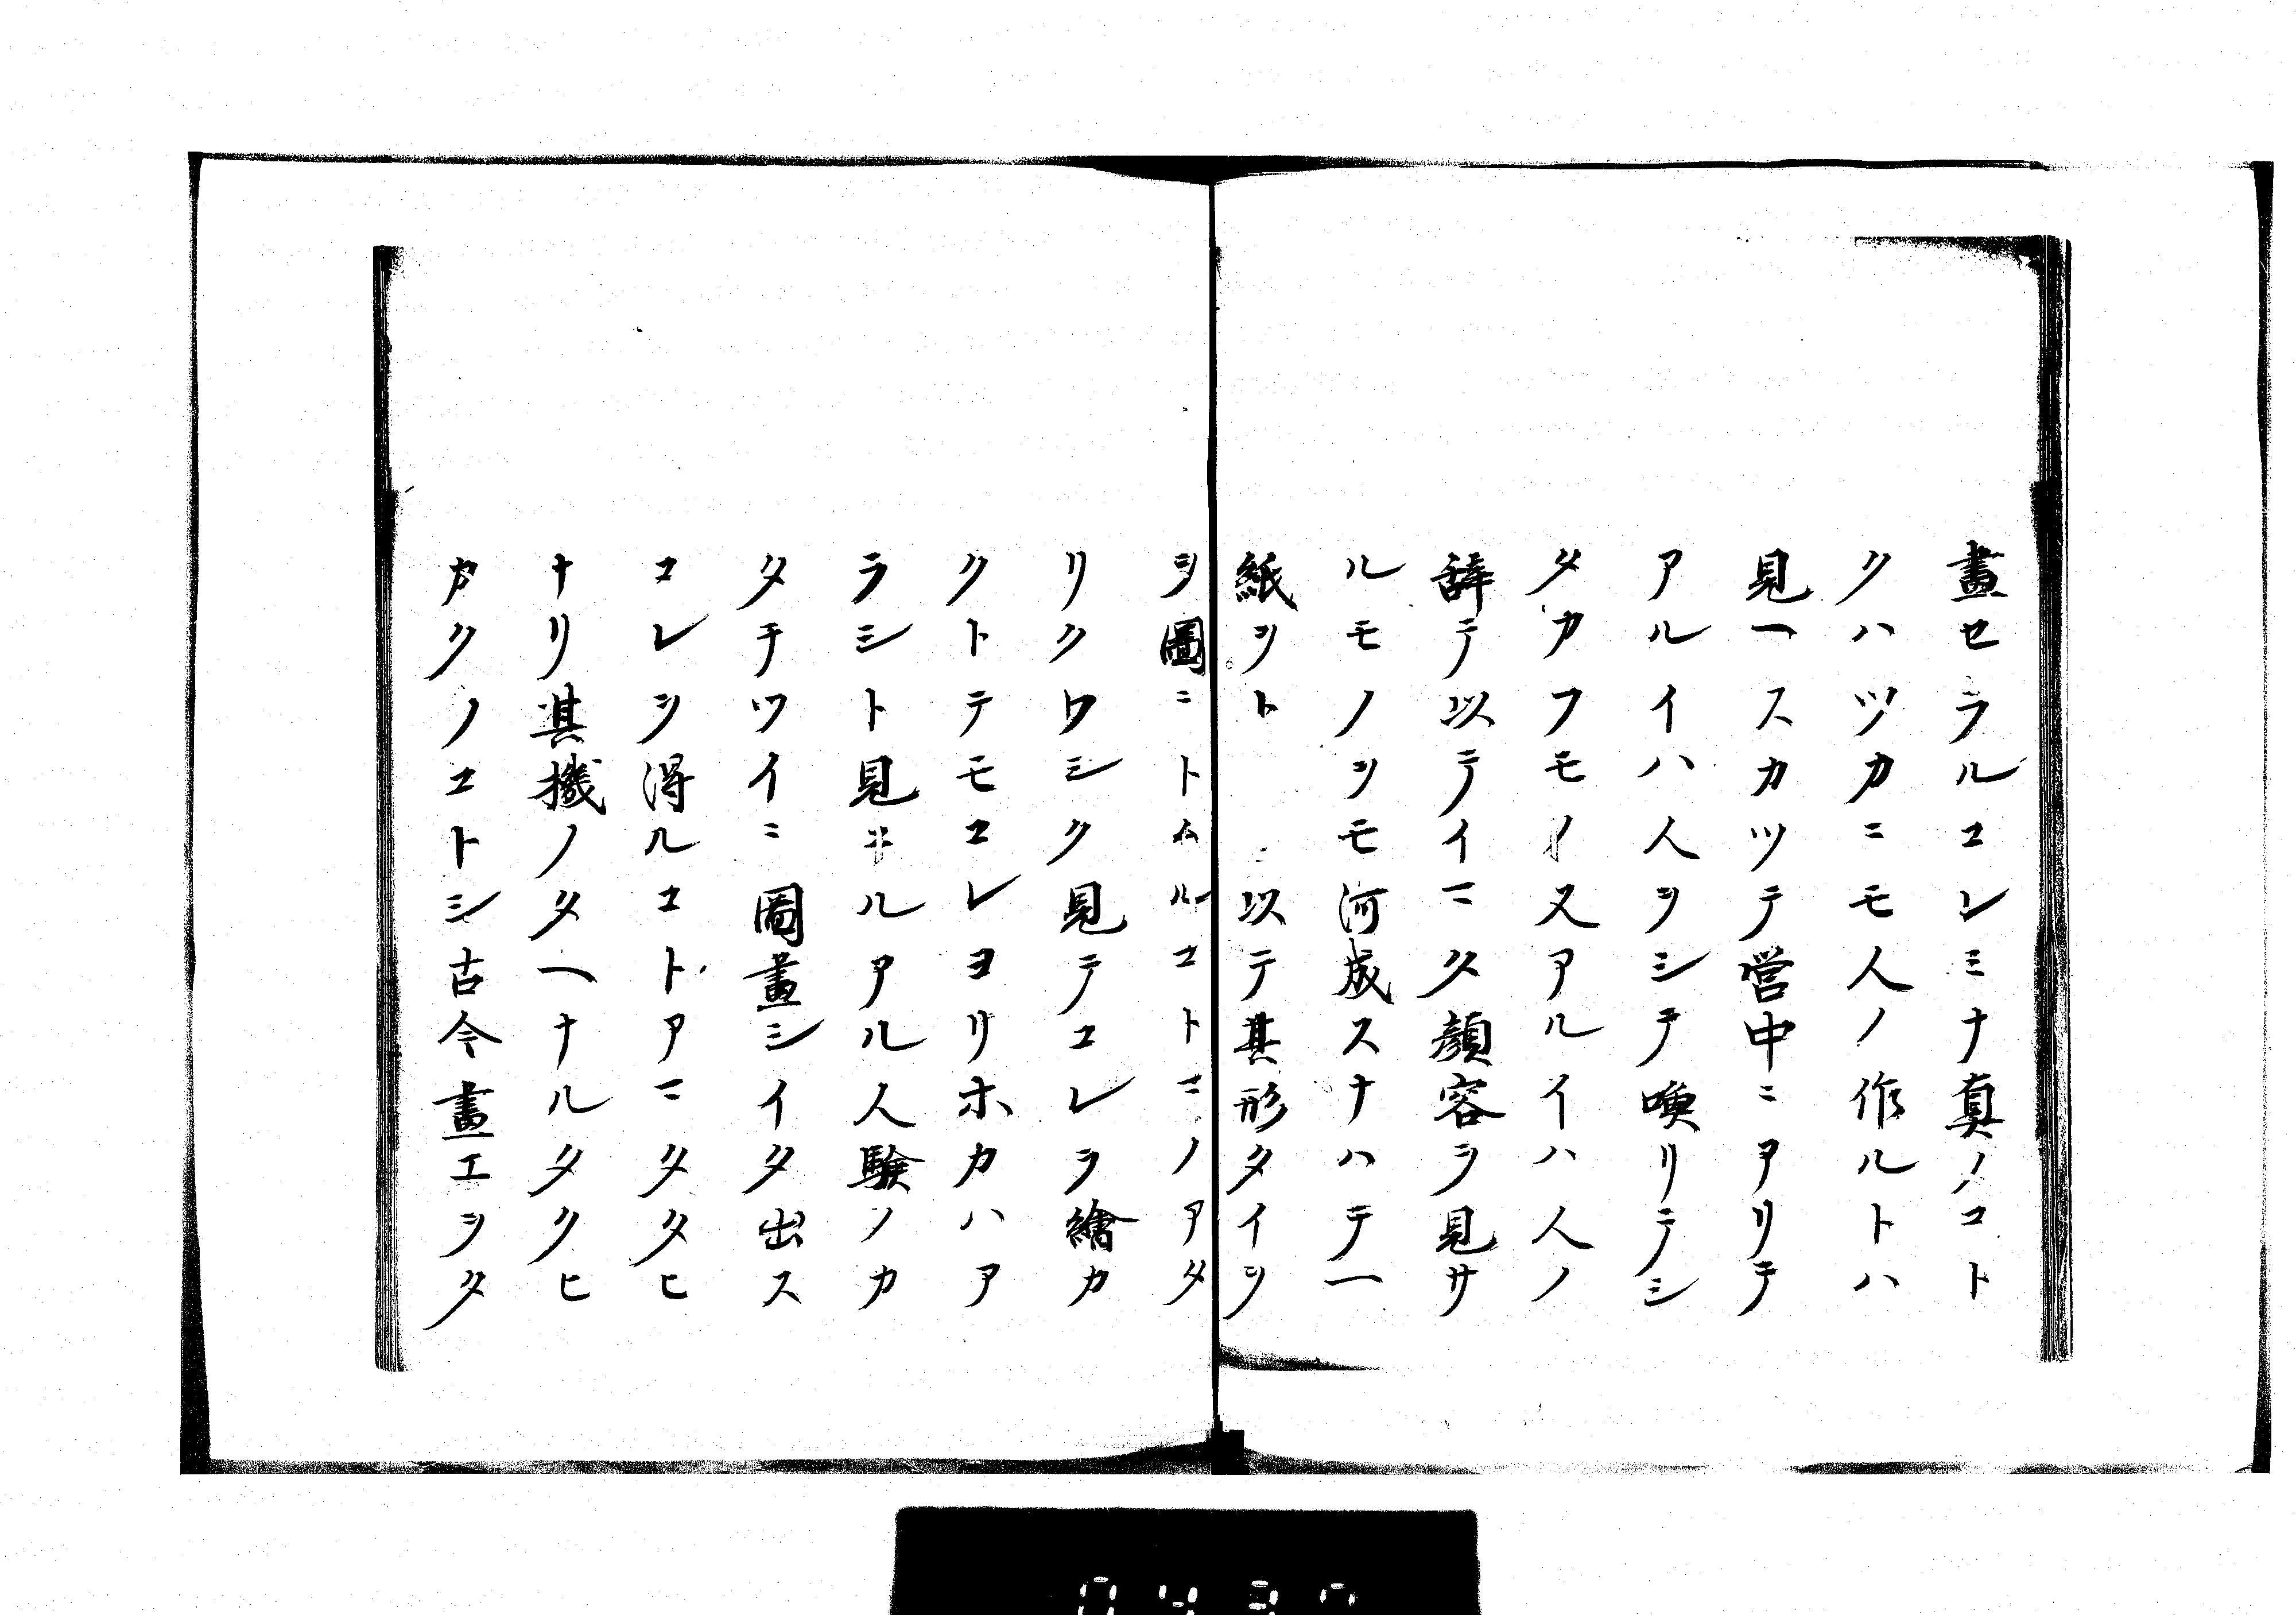 畫セラルコレミナ真ノコト
クハツカニモ人ノ作ルトハ
見ヘスカツテ営中ニアリテ
アルイハ人ヲシテ喚リテシ
タカフモノ又アルイハ人ノ
辞テ以テイマタ顔容ヲ見サ
ルモノヲモ河成スナハテ一
紙ヲト以テ其形タイヲ
ヲ圖ニトムルコトマノアタ
リクワシク見テコレヲ繪カ
クトテモコレヨリホカハア
ラシト見ヰルアル人験ノカ
タチツイニ圖畫シイタ出ス
コレヲ得ルコトアニタタヒ
ナリ其機ノタヘナルタクヒ
カクノコトシ古今畫エヲタ